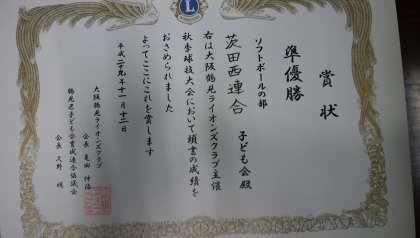 賞状
準優勝
ソフトボールの部
茨田西連合 子ども会殿
右は大阪鶴見ライオンズクラブ主催
秋季球技大会において頭書の成績を
おさめられました
よってここにこれを賞します
平成二十九年十一月十二日
大阪鶴見ライオンズクラブ
会長
鶴見区子ども会育成連合協議会
会長
L